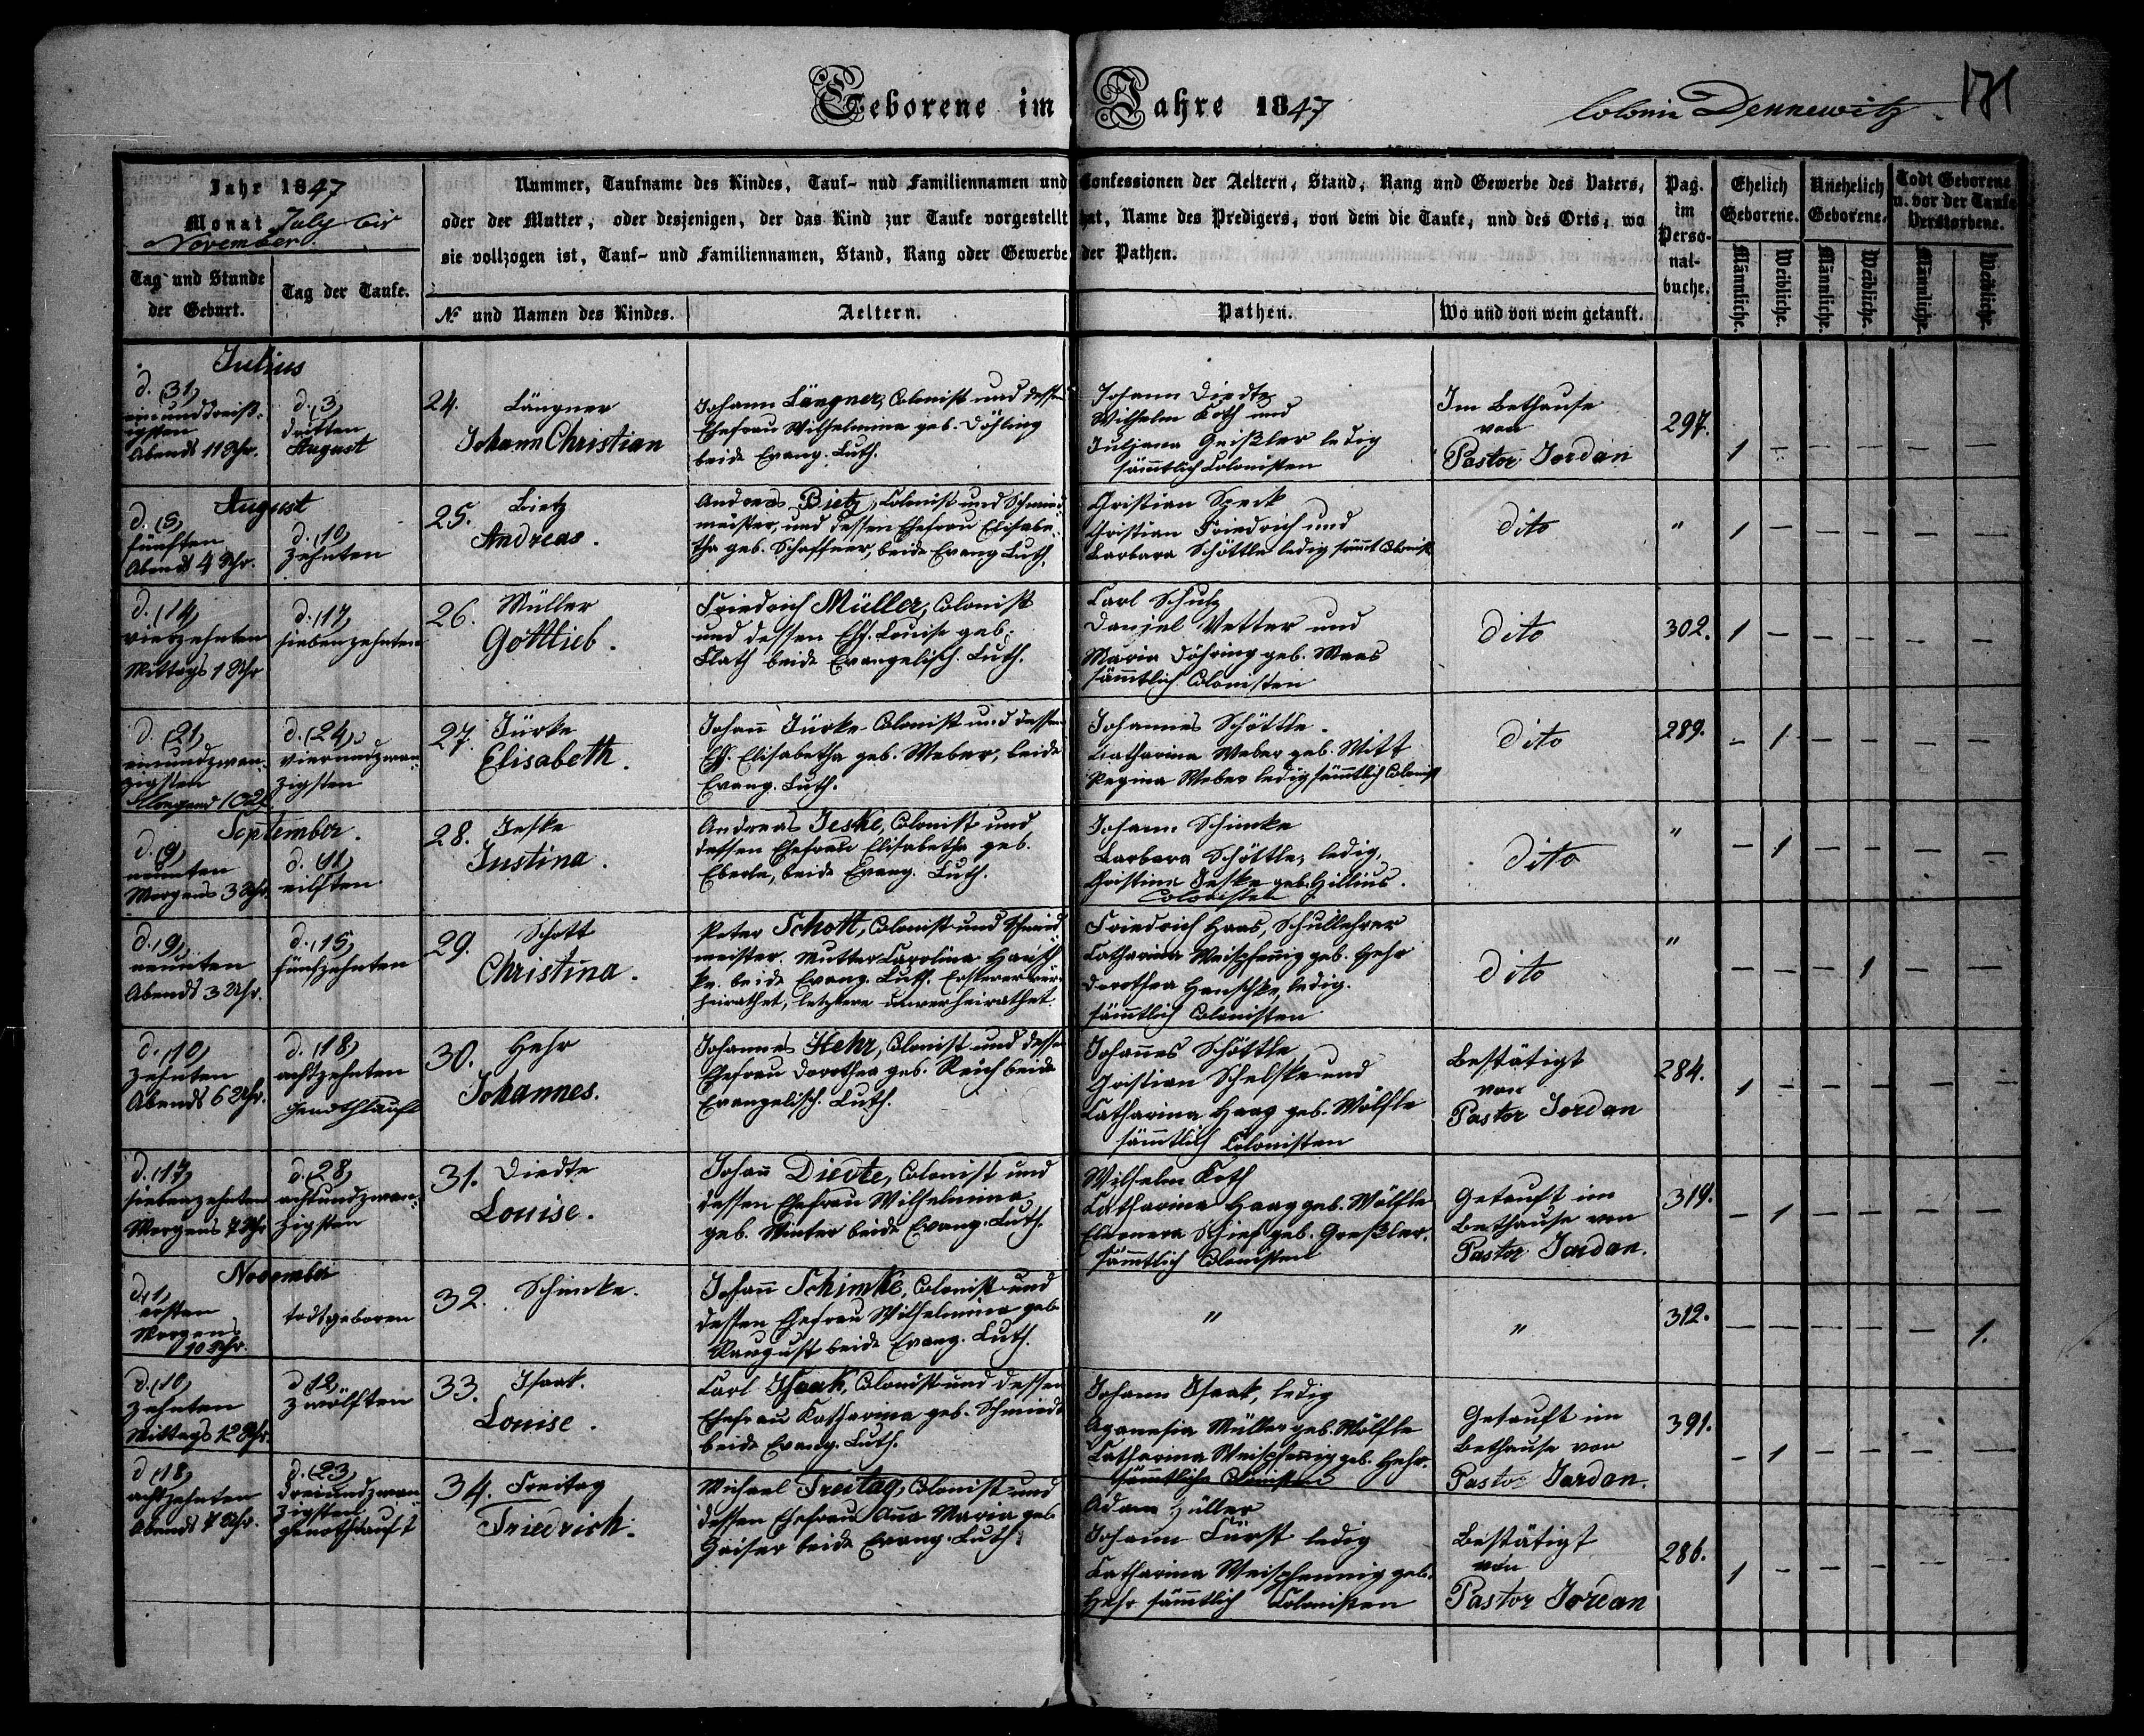 Geborene im Jahre 1847
Colonie Dennewitz.
171
Jahr 1847
Monat July bis
November.
Nummer, Taufname des Kindes, Tauf- und Familiennamen und Confessionen der Aeltern, Stand, Rang und Gewerbe des Vaters,
oder der Mutter, oder desjenigen, der das Kind zur Taufe vorgestellt hat, Name des Predigers, von dem die Taufe, und des Orts, wo
sie vollzogen ist, Tauf- und Familiennamen, Stand, Rang oder Gewerbe der Pathen.
Tag und Stunde
der Geburt.
Tag der Taufe.
№ und Namen des Kindes.
Aeltern.
Pathen.
Wo und von wem getauft.
Pag.
im
Perso-
nal-
buche.
Ehelich
Geborene.
Unehelich
Geborene.
Todt Geborene
u. vor der Taufe
Verstorbene.
Männliche.
Weibliche.
Männliche.
Weibliche.
Männliche.
Weibliche.
Julius
d. (31)
einunddreiß-
igsten
Abends 11 Uhr.
d. (3)
dritten
August
24. Längner
Johann Christian
Johann Längner, Colonist und dessen
Ehefrau Wilhelmine geb. Döhling
beide Evang. Luth.
Johann Diedte
Wilhelm Koth und
Juljana Geißler ledig
sämtlich Colonisten
Im Bethause
von
Pastor Jordan
297.
1 - - - - -
August
d. (5)
fünften
Abends 4 Uhr.
d. (10)
Zehnten
25. Bietz
Andreas.
Andreas Bietz, Colonist und Schmied-
meister, und dessen Ehefrau Elisabe-
tha geb. Schaffner, beide Evang Luth.
Christian Speck
Christian Friedrich und
Barbara Schöttle ledig sämt Colonist
dito
"
1 - - - - -
d. (14)
vierzehnten
Mittags 1 Uhr
d. (17)
siebenzehnten
26. Müller
Gottlieb.
Friedrich Müller, Colonist
und dessen Ehf. Louise geb.
Klath beide Evangelisch. Luth.
Carl Schulz
Daniel Vetter und
Maria Döhring geb. Maas
sämtlich Colonisten
dito
302.
1 - - - - -
d. (21)
einundzwan-
zigsten
d. (24)
vierundzwan-
zigsten
27. Türke
Elisabeth.
Johann Türke Colonist und dessen
Ehf. Elisabetha geb. Weber, beide
Evang. Luth.
Johannes Schöttle.
Katharina Weber geb. Witt
Regina Weber ledig sämtlich Colonist
dito
289.
- 1 - - - -
September.
d. (9)
neunten
Morgens 3 Uhr.
d. (11)
eilften
28. Jeske
Justina.
Andreas Jeske, Colonist und
dessen Ehefrau Elisabetha geb.
Eberle, beide Evang. Luth.
Johann Schimke
Barbara Schöttle, ledig,
Christina Jeske geb. Hillius.
Colonisten
dito
"
- 1 - - - -
d. (9)
neunten
Abends 3 Uhr.
d. (15)
fünfzehnten
29. Schott
Christina.
Peter Schott, Colonist und Schmied
meister. Mutter Carolina Hensch
ke. beide Evang. Luth. Ersterer ver-
heirathet, letztere unverheirathet.
Friedrich Haas, Schullehrer
Catharina Weispfennig geb. Hehr
Dorothea Henschke, ledig.
sämtlich Colonisten
dito
"
- - - 1 - -
d. (10)
Zehnten
Abends 6 Uhr.
d. (18)
achtzehnten
genothtauft
30. Hehr
Johannes.
Johannes Hehr, Colonist und dessen
Ehefrau Dorothea geb. Reich beide
Evangelisch. Luth.
Johannes Schöttle
Christian Schelske und
Catharina Haag geb. Wölfle
sämtlich Colonisten
Bestätigt
von
Pastor Jordan
284.
1 - - - - -
d. (17)
siebenzehnten
Morgens 7 Uhr
d. (28)
achtundzwan-
zigsten
31. Diedte
Louise.
Johann Diedte, Colonist und
dessen Ehefrau Wilhelmina
geb. Winter beide Evang. Luth.
Wilhelm Koth
Catharina Haag geb. Wölfle
Eleonora Schief geb. Greßler.
sämtlich Colonisten
Getauft im
Bethause von
Pastor Jordan.
319.
- 1 - - - -
November
d. (1)
ersten
Morgens
10 Uhr.
todtgeboren
32. Schimke.
Johann Schimke, Colonist und
dessen Ehefrau Wilhelmina geb.
beide Evang. Luth.
"
"
312.
- - - - - 1.
d. (10)
Zehnten
Mittags 12 Uhr.
d. (12)
Zwölften
33. Isaak.
Louise.
Carl Isaak, Colonist und dessen
Ehefrau Katharina geb. Schmiedt
beide Evang. Luth.
Johann Isaak, ledig
Aganesia Müller geb. Wölfle
Catharina Weispfennig geb. Hehr.
sämtliche Colonisten
Getauft im
Bethause von
Pastor Jordan.
391.
- 1 - - - -
d. (18)
achtzehnten
Abends 7 Uhr.
d. (23)
dreiundzwan
zigsten
genothtauft
34. Freitag
Friedrich.
Michael Freitag, Colonist und
dessen Ehefrau Anna Maria geb.
Zaiser beide Evang. Luth.
Adam Hüller
Johann Fürst ledig
Catharina Weispfennig geb.
Hehr sämtlich Colonisten
Bestätigt
von
Pastor Jordan
286.
1 - - - - -